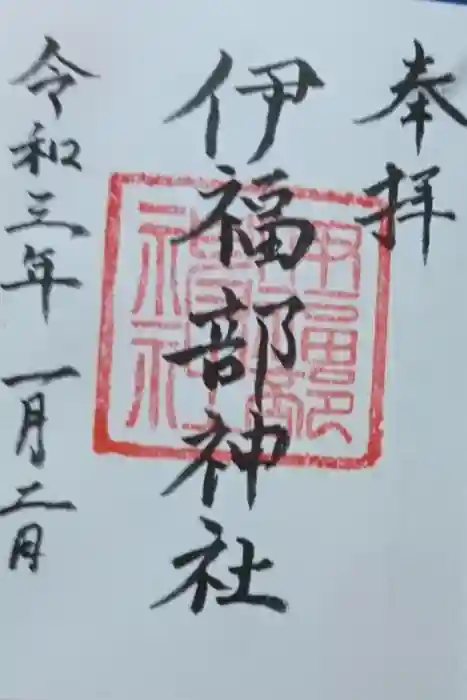 奉拝
伊福部神社
令和三年一月二日